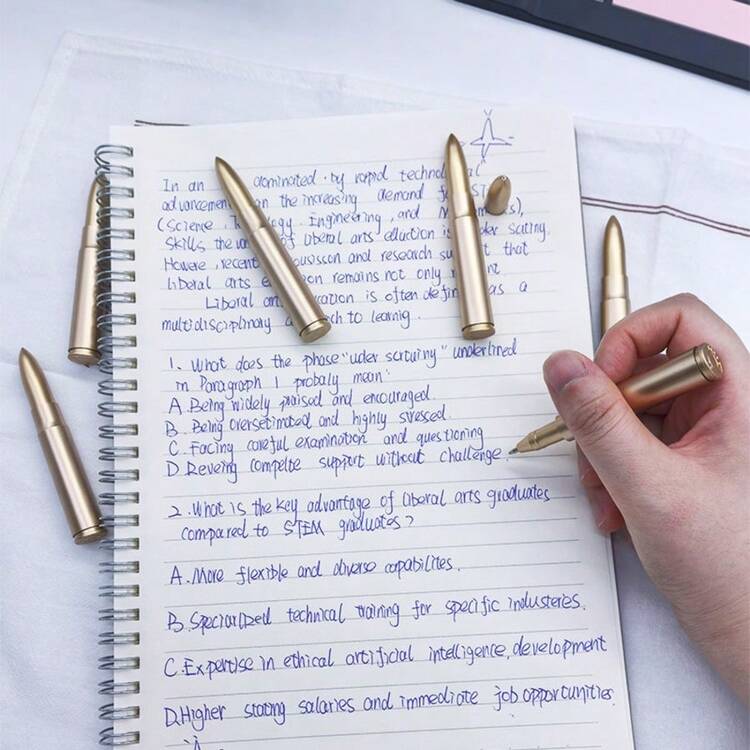 In an dominated by rapid technological
advancement an the increasing demand for ST
(Science, Technology, Engineering, and M s),
skills the va of liberal arts eduction is uder scitiny.
Howere, recent ousisson and research su t that
liberal arts e on remains not only r nt
Liberal ar cation is often defin as a
multidisciplinary a ch to learnig.
1. What does the phase "uder scrtuiny" underlined
in Paragraph 1 probaly mean
A. Being widely praised and encouraged.
B. Being oversetimated and highly stressed.
C. Facing careful examination and questioning
D Reveing compelte support without challenge.
2. What is the key advantage of liberal arts graduates
compared to STEM graduates?
A. More flexible and diverse capabilites.
B. Specialized technical training for specific industeries.
C. Expertise in ethical artificial intelligence, development
D. Higher stating salaries and immediate job opportunities